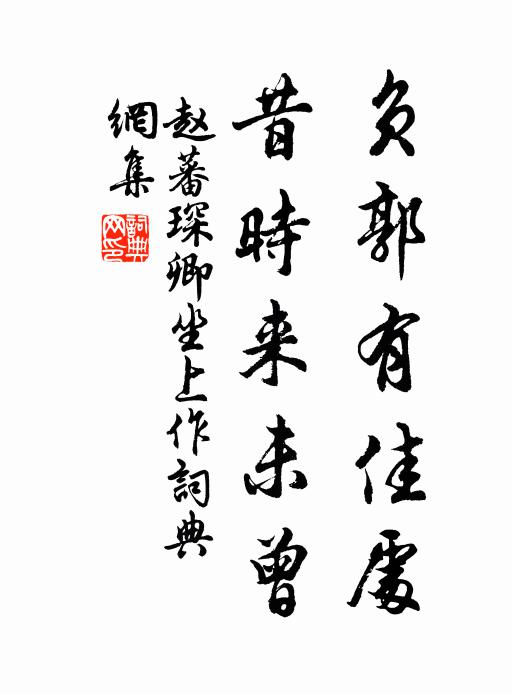 负郭有佳處
昔時来未曾
赵蕃琛卿坐上作詞典
網集
詞典網印